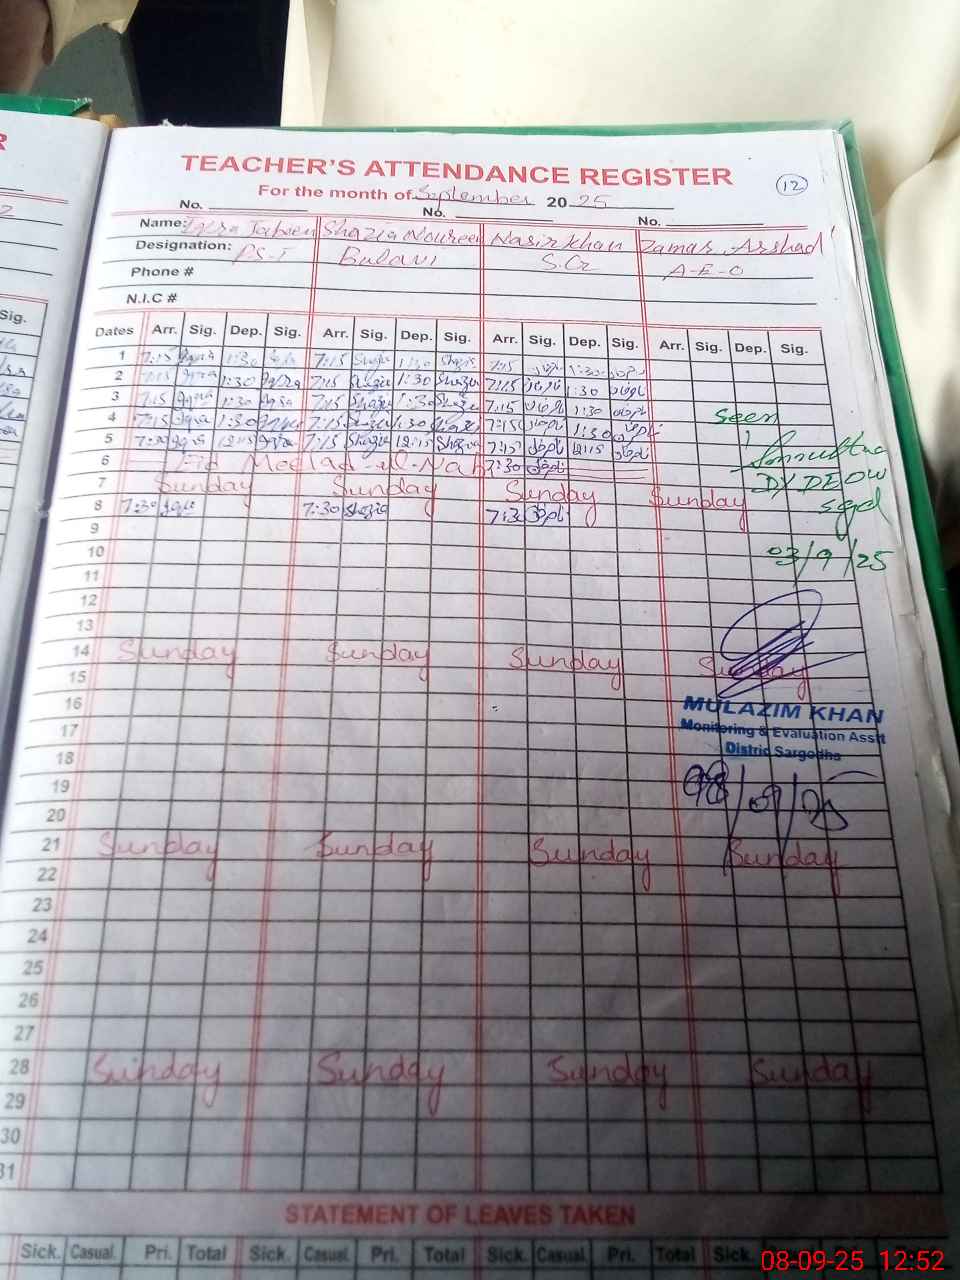 TEACHER'S ATTENDANCE REGISTER
12
For the month of September 2025
No. No. No.
Name: Iqra Jabeen Shazia Noureen Nasir Khan Zamas Arshad
Designation: PS-T S.G A-E-O
Phone #
N.I.C #
Dates Arr. Sig. Dep. Sig. Arr. Sig. Dep. Sig. Arr. Sig. Dep. Sig. Arr. Sig. Dep. Sig.
1 7:15 Iqra 1:30 Iqra 7:15 Shazia 1:30 Shazia 7:15 1:30
2 7:15 Iqra 1:30 Iqra 7:15 Shazia 1:30 Shazia 7:15 1:30
3 7:15 Iqra 1:30 Iqra 7:15 Shazia 1:30 Shazia 7:15 1:30 Seen
4 7:15 Iqra 1:30 Iqra 7:15 Shazia 1:30 Shazia 7:15 1:30
5 7:30 Iqra 12:15 Iqra 7:15 Shazia 12:15 Shazia 7:15 12:15
6 Eid Meelad-ul-Nabi 7:30
7 Sunday Sunday Sunday Sunday
DY DEOW
8 7:30 Iqra 7:30 Shazia 7:30
sgd
9
10
03/9/25
11
12
13
14 Sunday Sunday Sunday Sunday
15
16
MULAZIM KHAN
17
Monitoring & Evaluation Asstt
Distric Sargodha
18
19
08/09/25
20
21 Sunday Sunday Sunday Sunday
22
23
24
25
26
27
28 Sunday Sunday Sunday Sunday
29
30
31
STATEMENT OF LEAVES TAKEN
Sick. Casual. Pri. Total Sick. Casual. Pri. Total Sick. Casual. Pri. Total Sick.
08-09-25 12:52